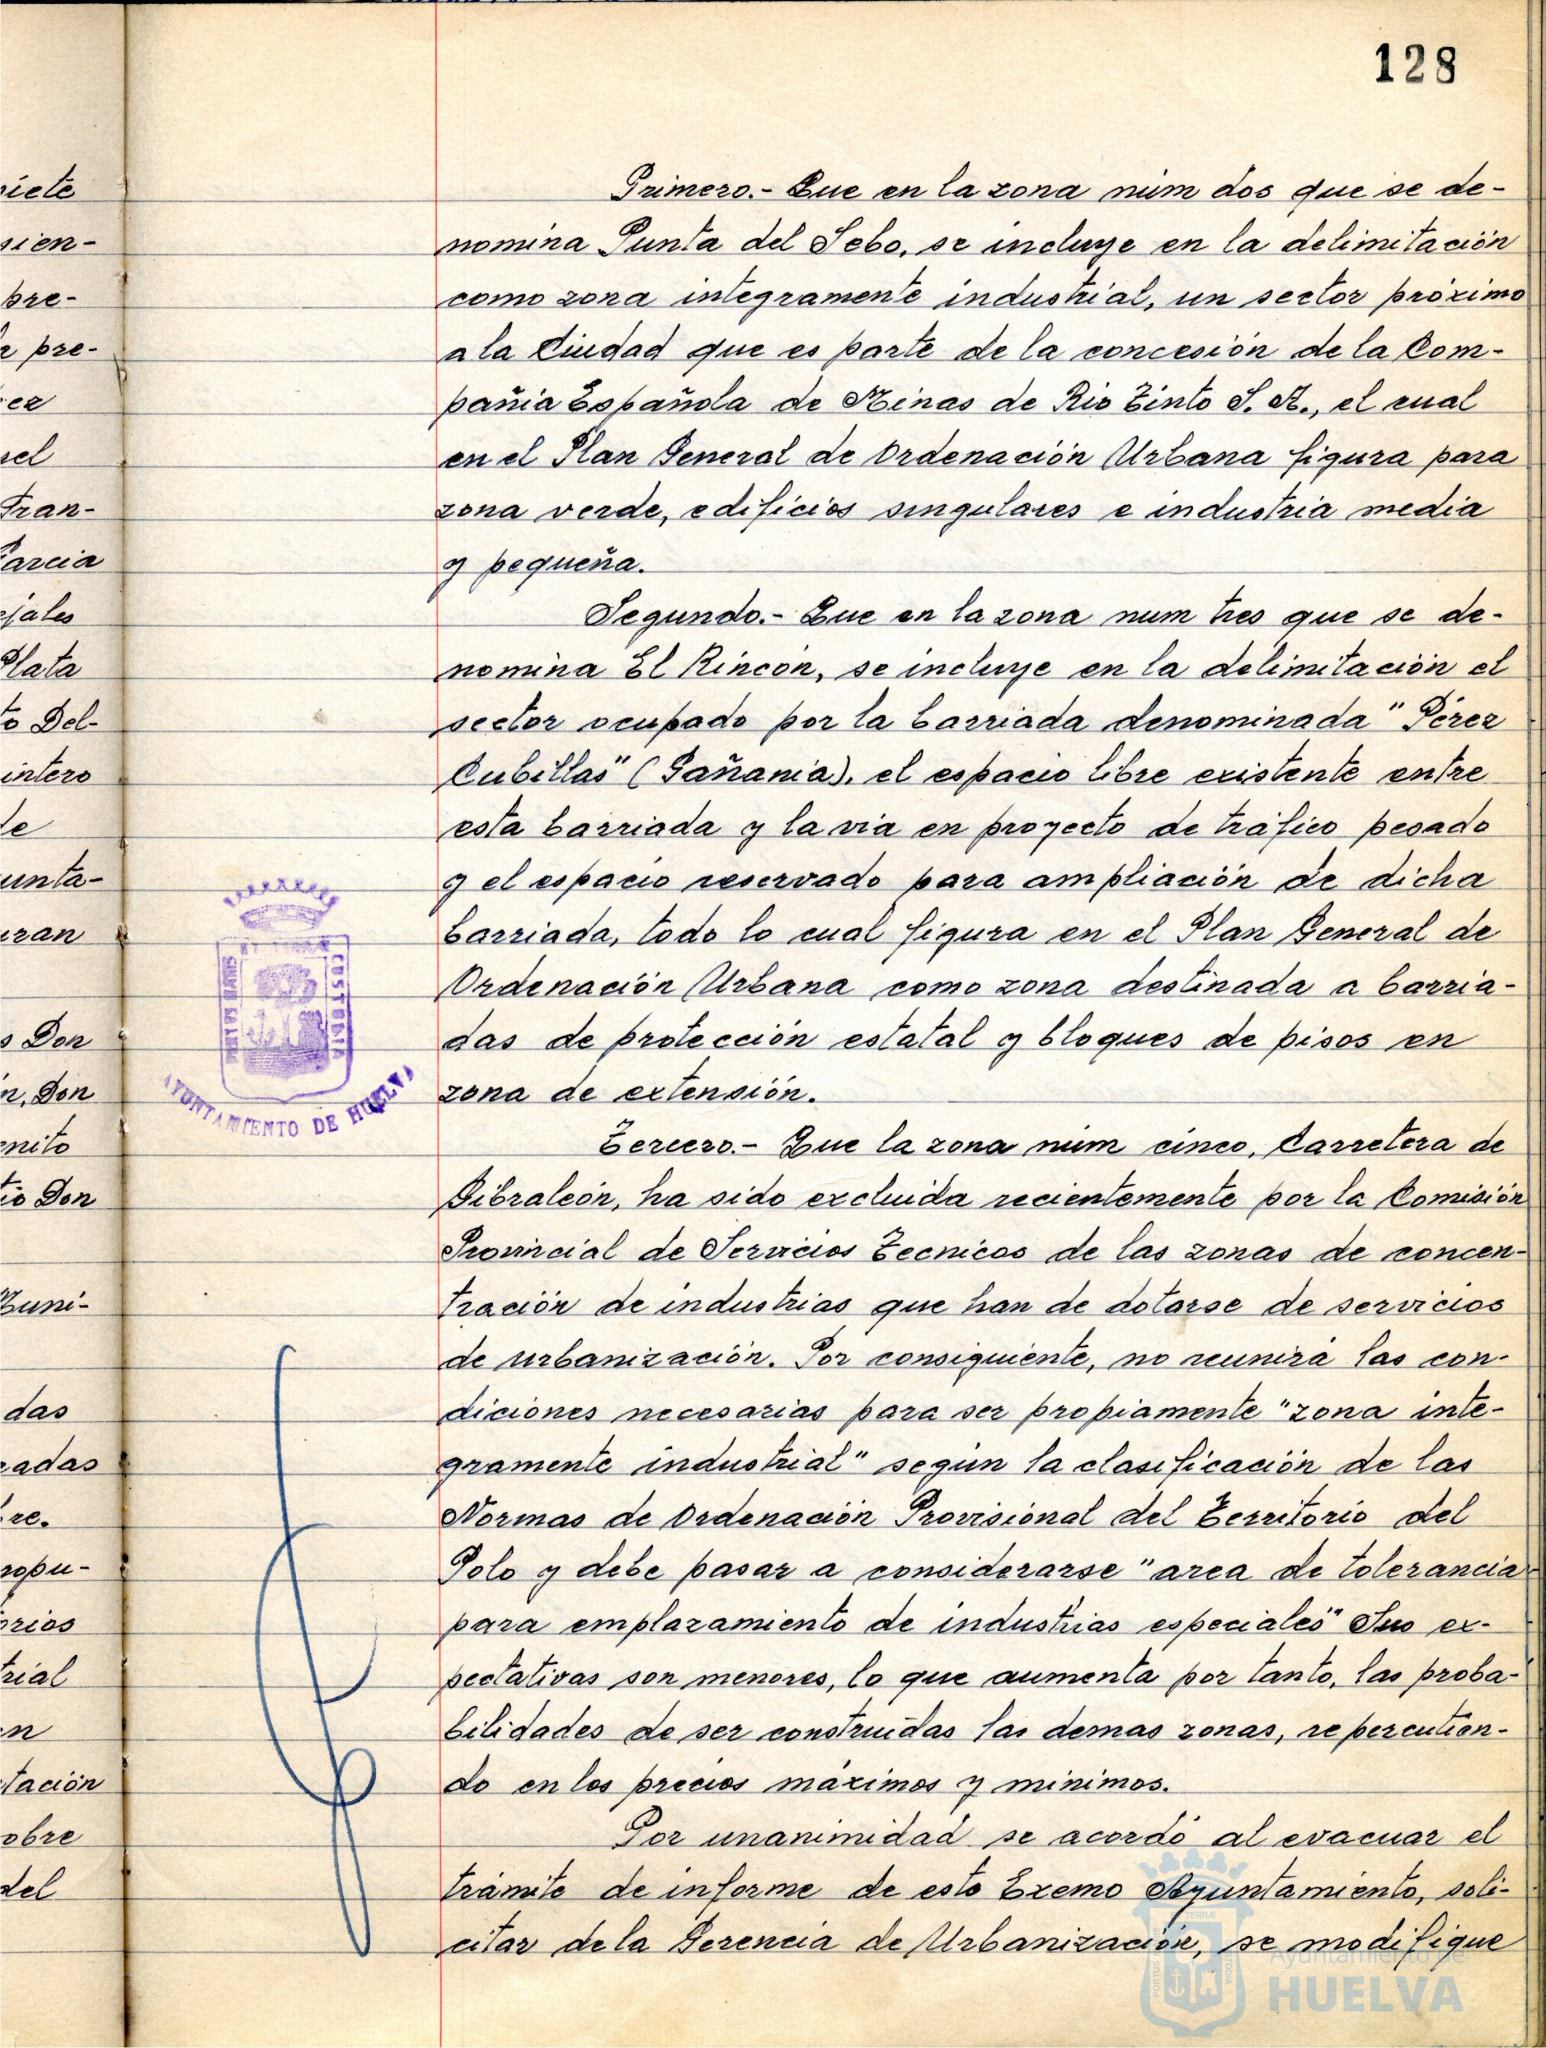 128
Primero.- Que en la zona núm dos que se de-
nomina Punta del Sebo, se incluye en la delimitación
como zona integramente industrial, un sector próximo
a la Ciudad que es parte de la concesión de la Com-
pañia Española de Minas de Rio Tinto S. A., el cual
en el Plan General de Ordenación Urbana figura para
zona verde, edificios singulares e industria media
y pequeña.
Segundo.- Que en la zona num tres que se de-
nomina El Rincón, se incluye en la delimitación el
sector ocupado por la barriada denominada "Pérez
Cubillas" (Gañania), el espacio libre existente entre
esta barriada y la via en proyecto de tráfico pesado
y el espacio reservado para ampliación de dicha
barriada, todo lo cual figura en el Plan General de
Ordenación Urbana como zona destinada a barria-
das de protección estatal y bloques de pisos en
zona de extensión.
Tercero.- Que la zona núm cinco, Carretera de
Gibraleón, ha sido excluida recientemente por la Comisión
Provincial de Servicios Tecnicos de las zonas de concen-
tración de industrias que han de dotarse de servicios
de urbanización. Por consiguiente, no reunirá las con-
diciones necesarias para ser propiamente "zona inte-
gramente industrial" según la clasificación de las
Normas de Ordenación Provisional del Territorio del
Polo y debe pasar a considerarse "area de tolerancia
para emplazamiento de industrias especiales" Sus ex-
pectativas son menores, lo que aumenta por tanto, las proba-
bilidades de ser construidas las demas zonas, repercutien-
do en los precios máximos y minimos.
Por unanimidad se acordó al evacuar el
trámite de informe de este Excmo Ayuntamiento, soli-
citar de la Gerencia de Urbanización, se modifique
pre-
pre-
Fran-
Garcia
Plata
Del-
de
Don
Don
Don
das
del
PORTUS MARIS
ET TERRÆ
CUSTODIA
AYUNTAMIENTO DE HUELVA
Ayuntamiento de
HUELVA